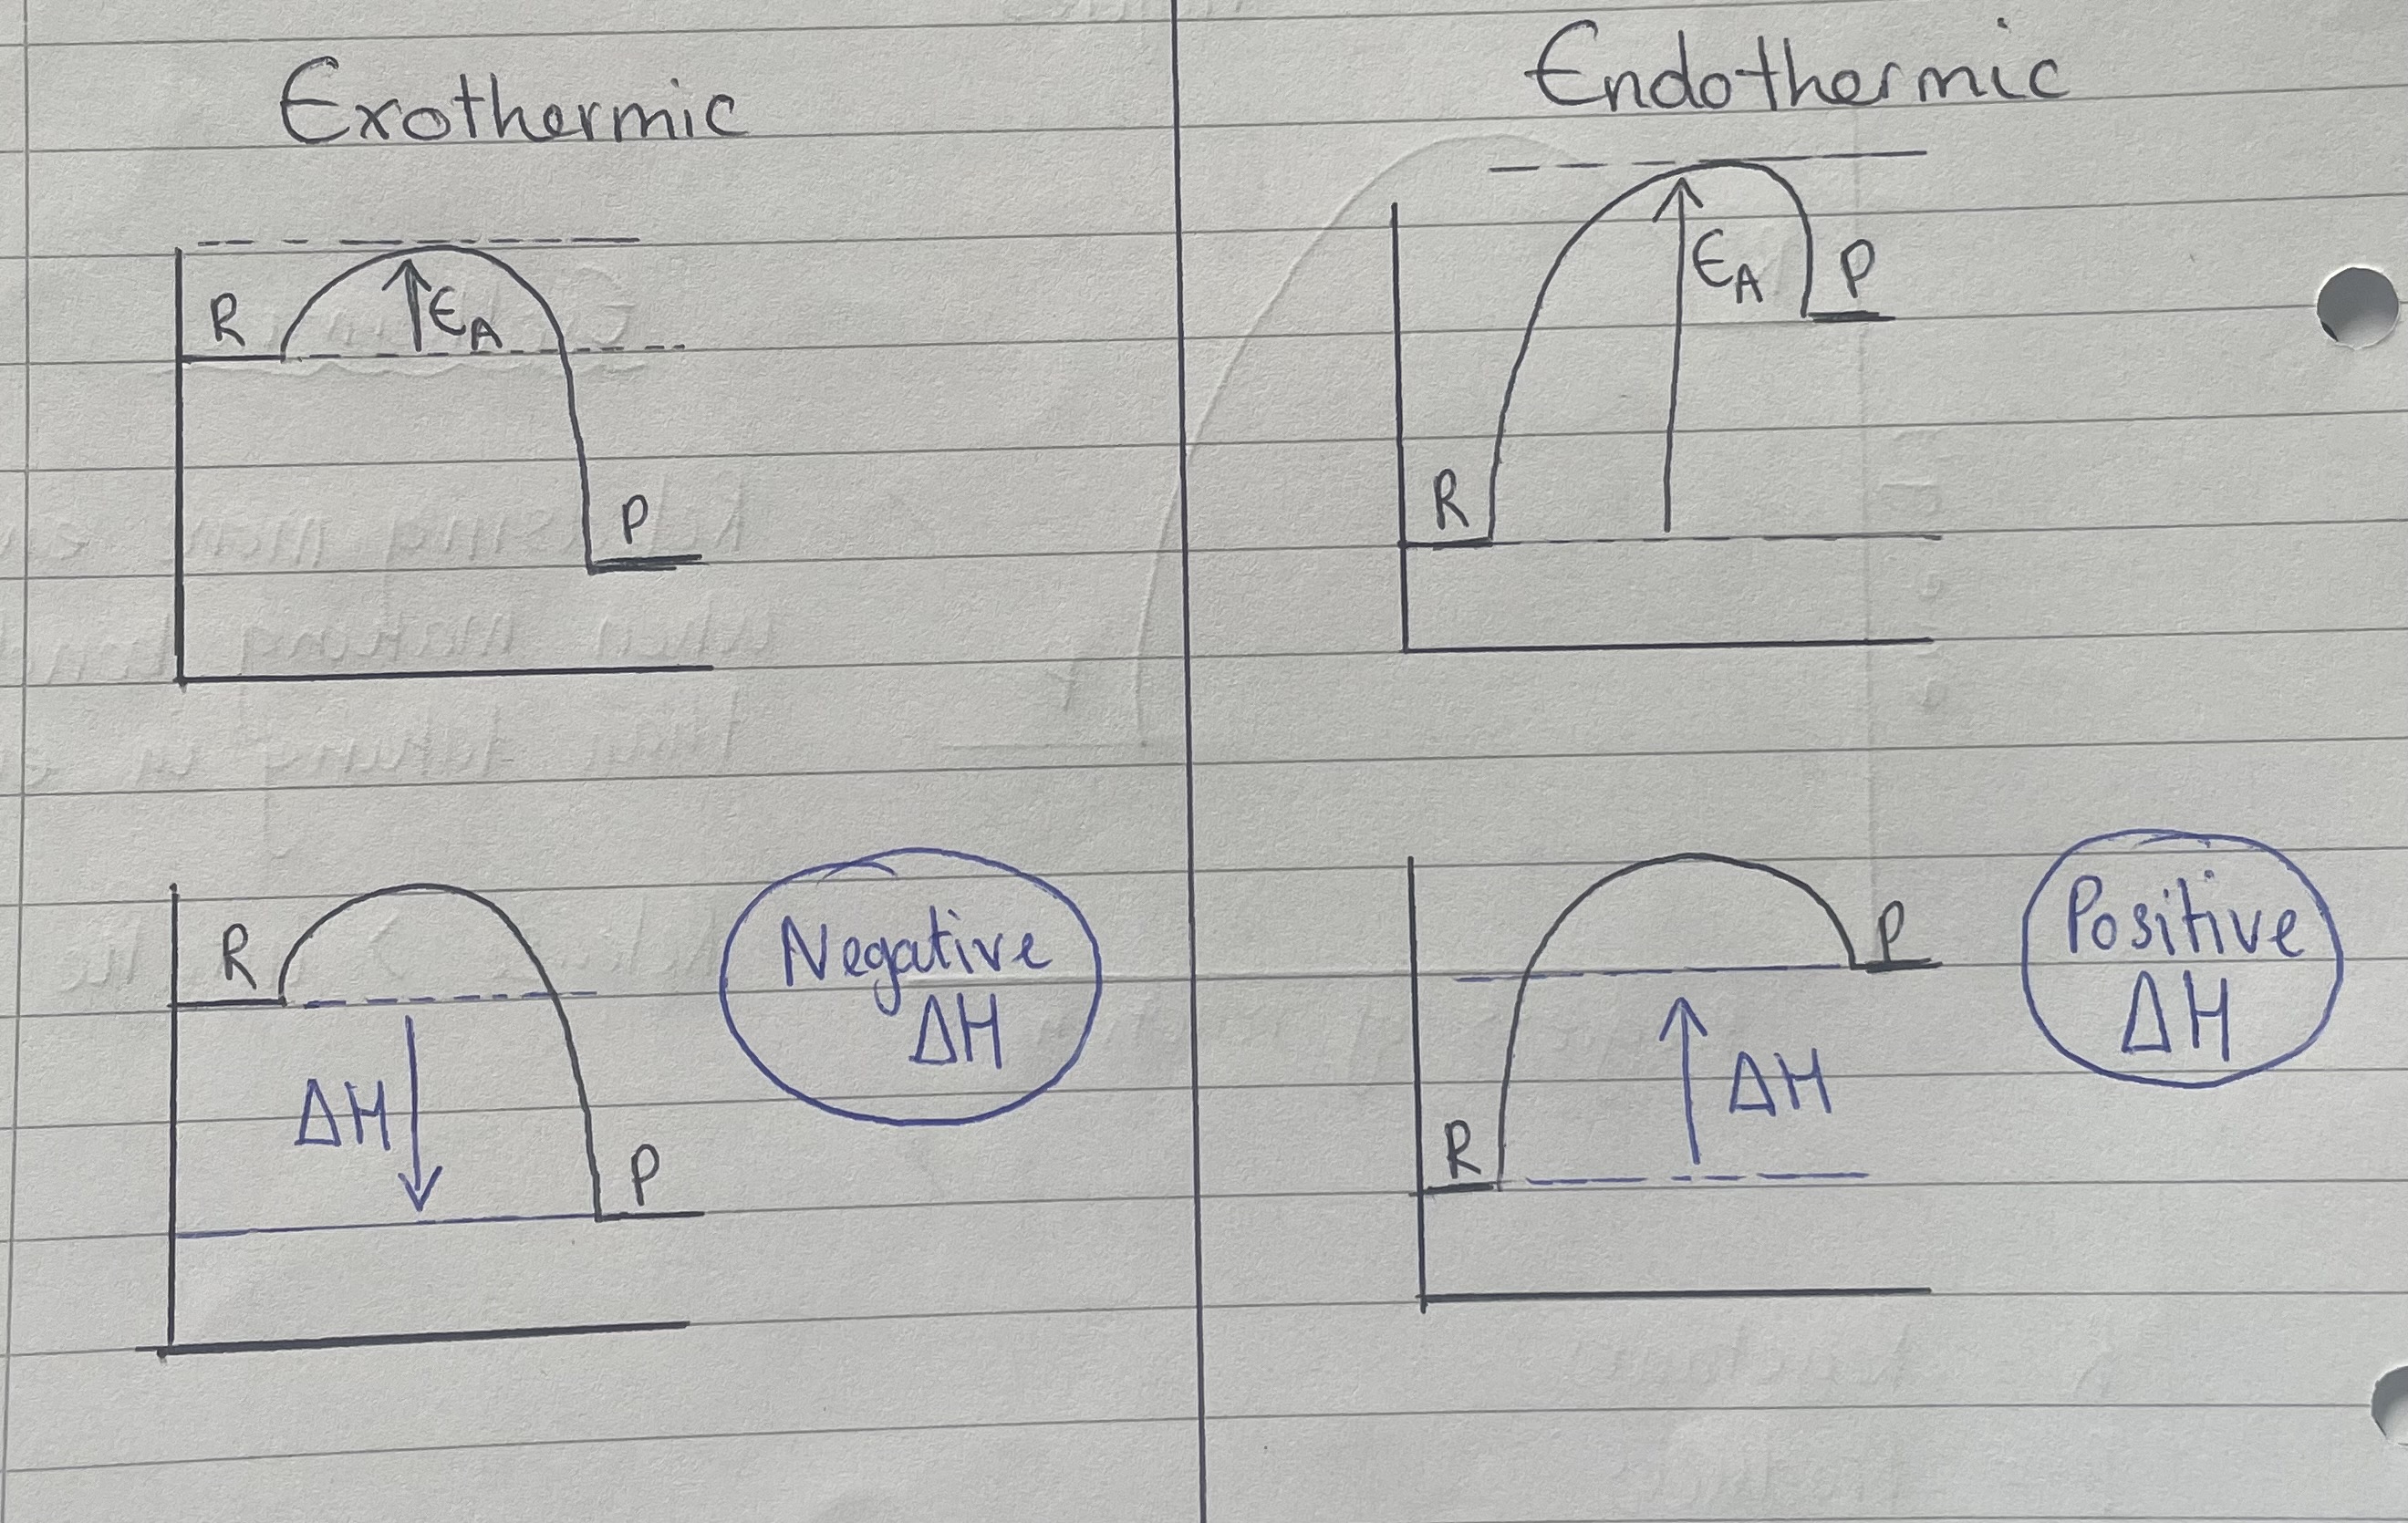 Exothermic
R
EA
P
R
ΔH
P
Negative
ΔH
Endothermic
EA
P
R
P
ΔH
R
Positive
ΔH